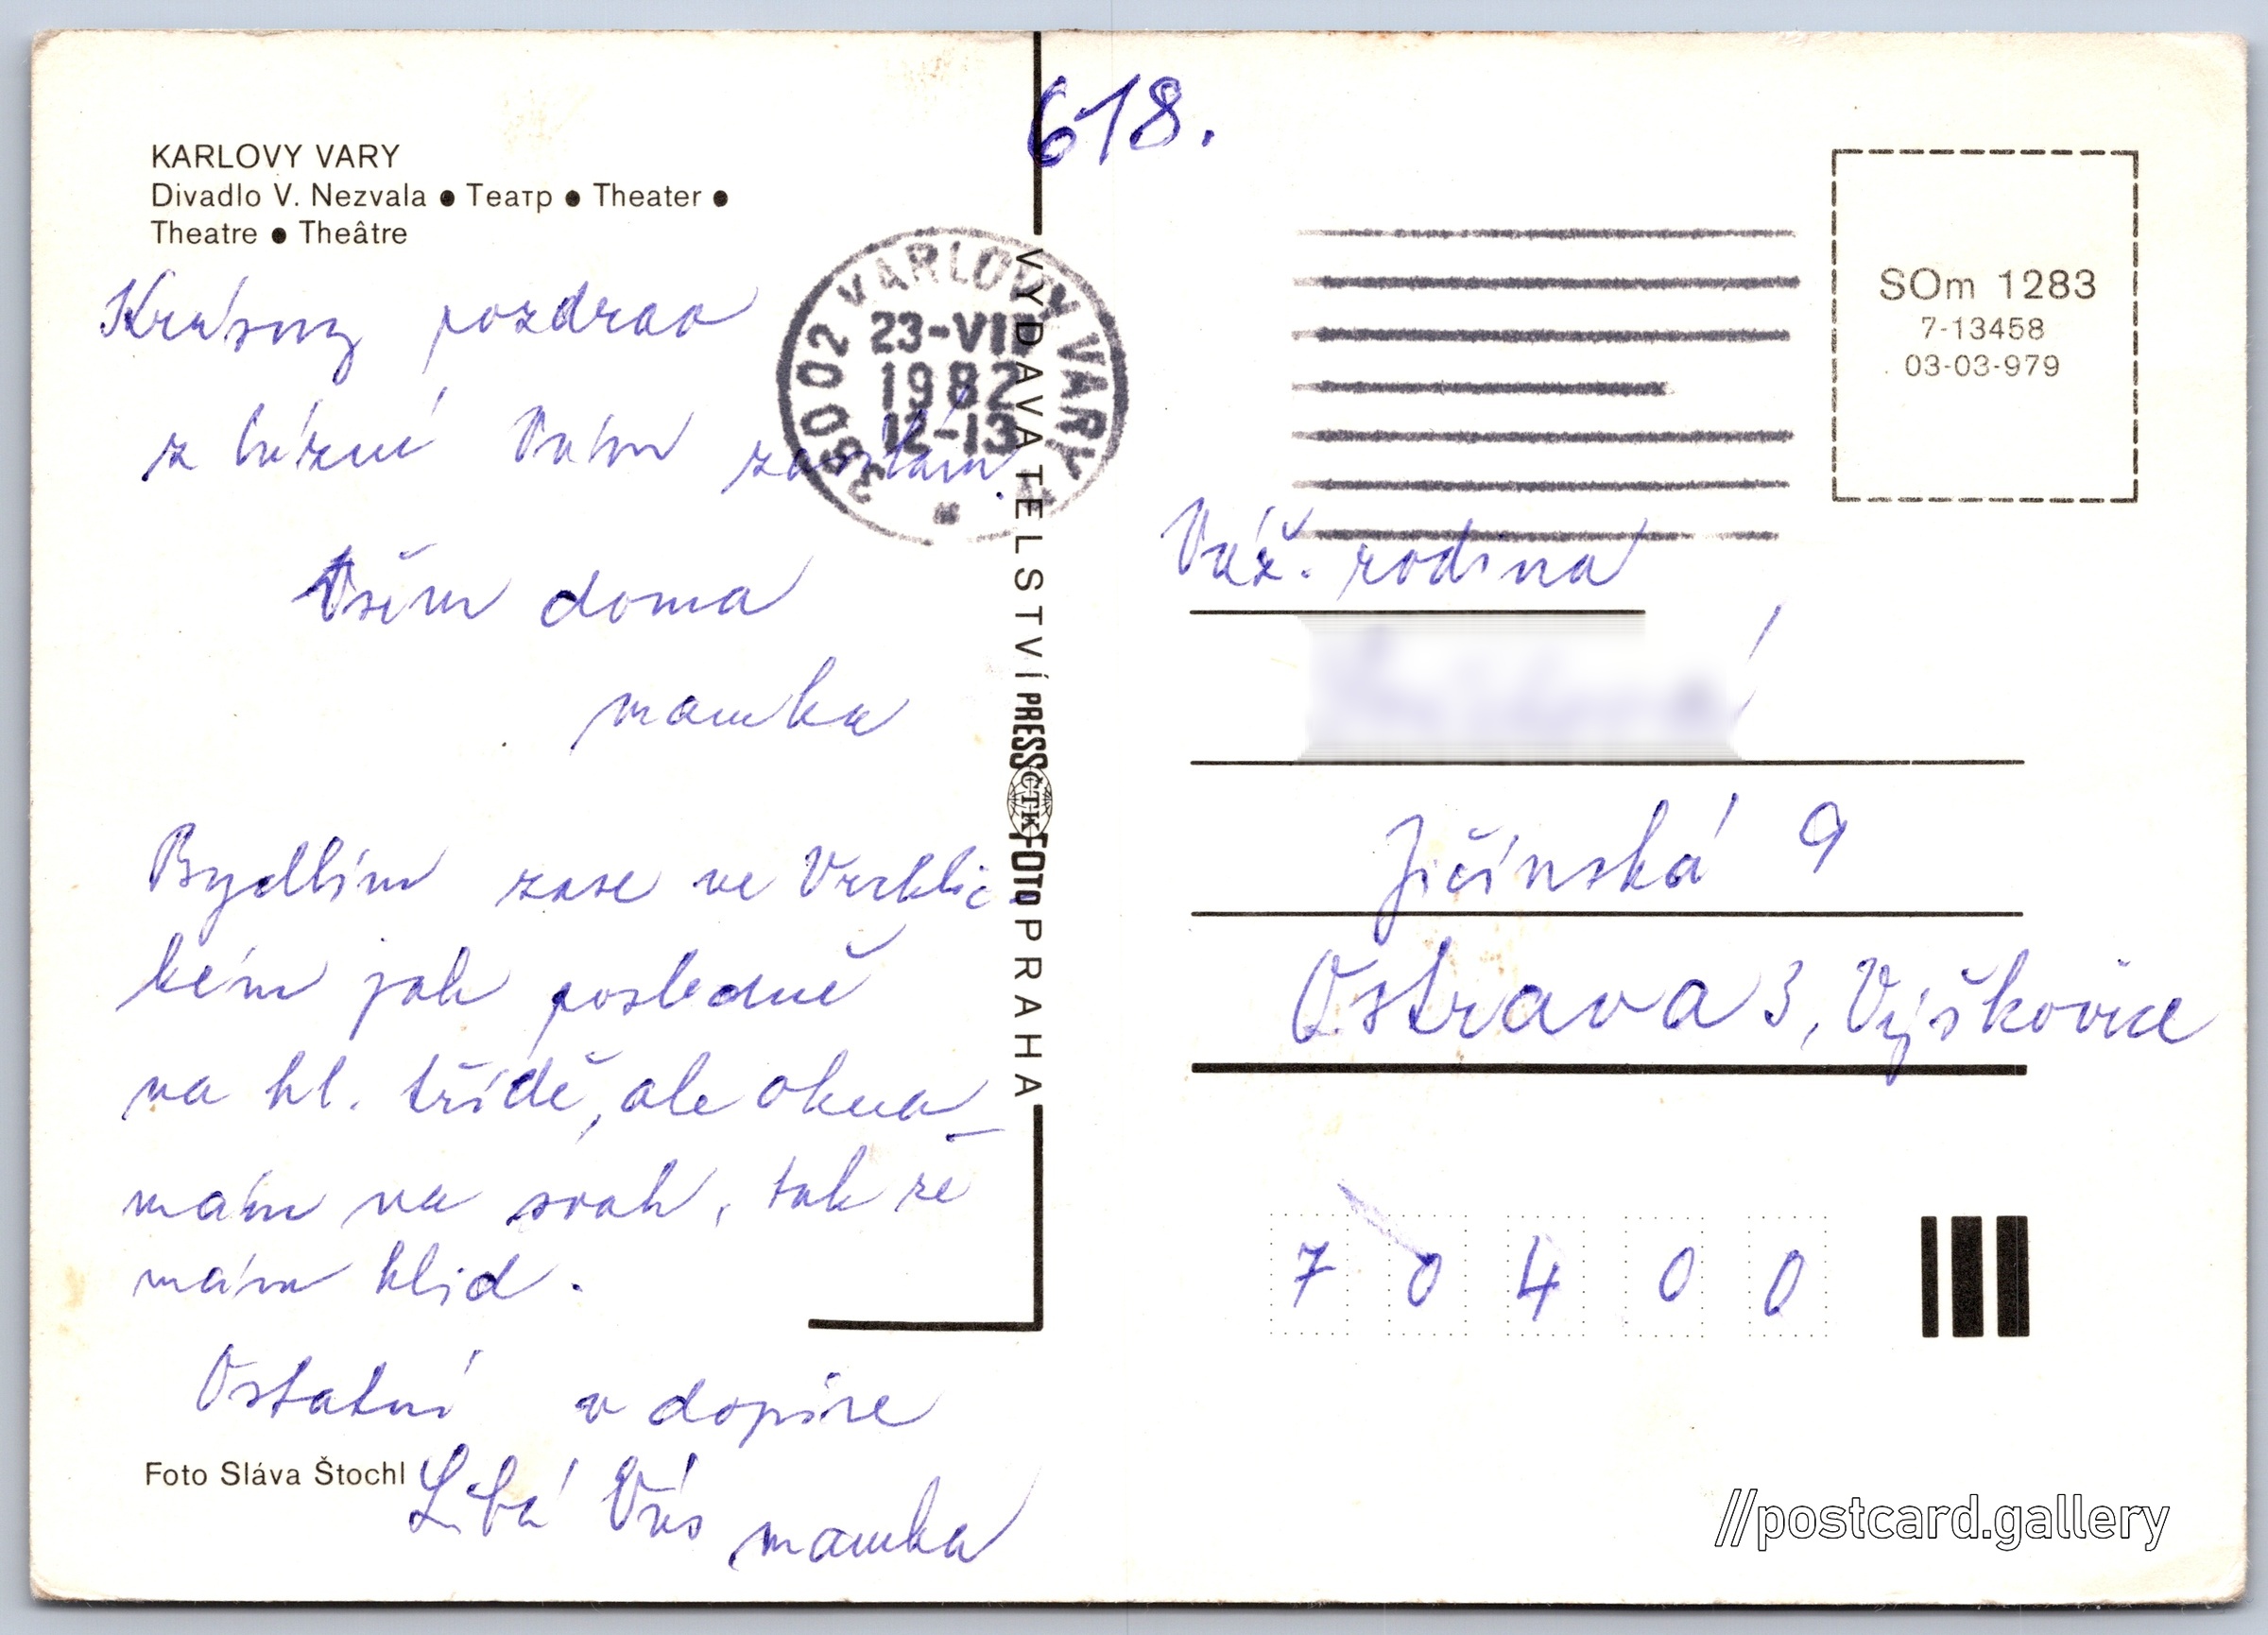 618.
KARLOVY VARY
Divadlo V. Nezvala ● Театр ● Theater ●
Theatre ● Theâtre
Krásný pozdrav
z lázní Vám zasílám.
Všem doma
mamka
Bydlím zase ve Vrchlic-
kém jak posledně
na hl. třídě, ale okna
mám na svah, tak že
mám klid.
Ostatní v dopise
Líbá Vás mamka
Foto Sláva Štochl
360 02 KARLOVY VARY
23-VII
1982
12-13
VYDAVATELSTVÍ PRESSFOTO PRAHA
ČTK
SOm 1283
7-13458
03-03-979
Váž. rodina
Jičínská 9
Ostrava 3, Výškovice
7 0 4 0 0
//postcard.gallery